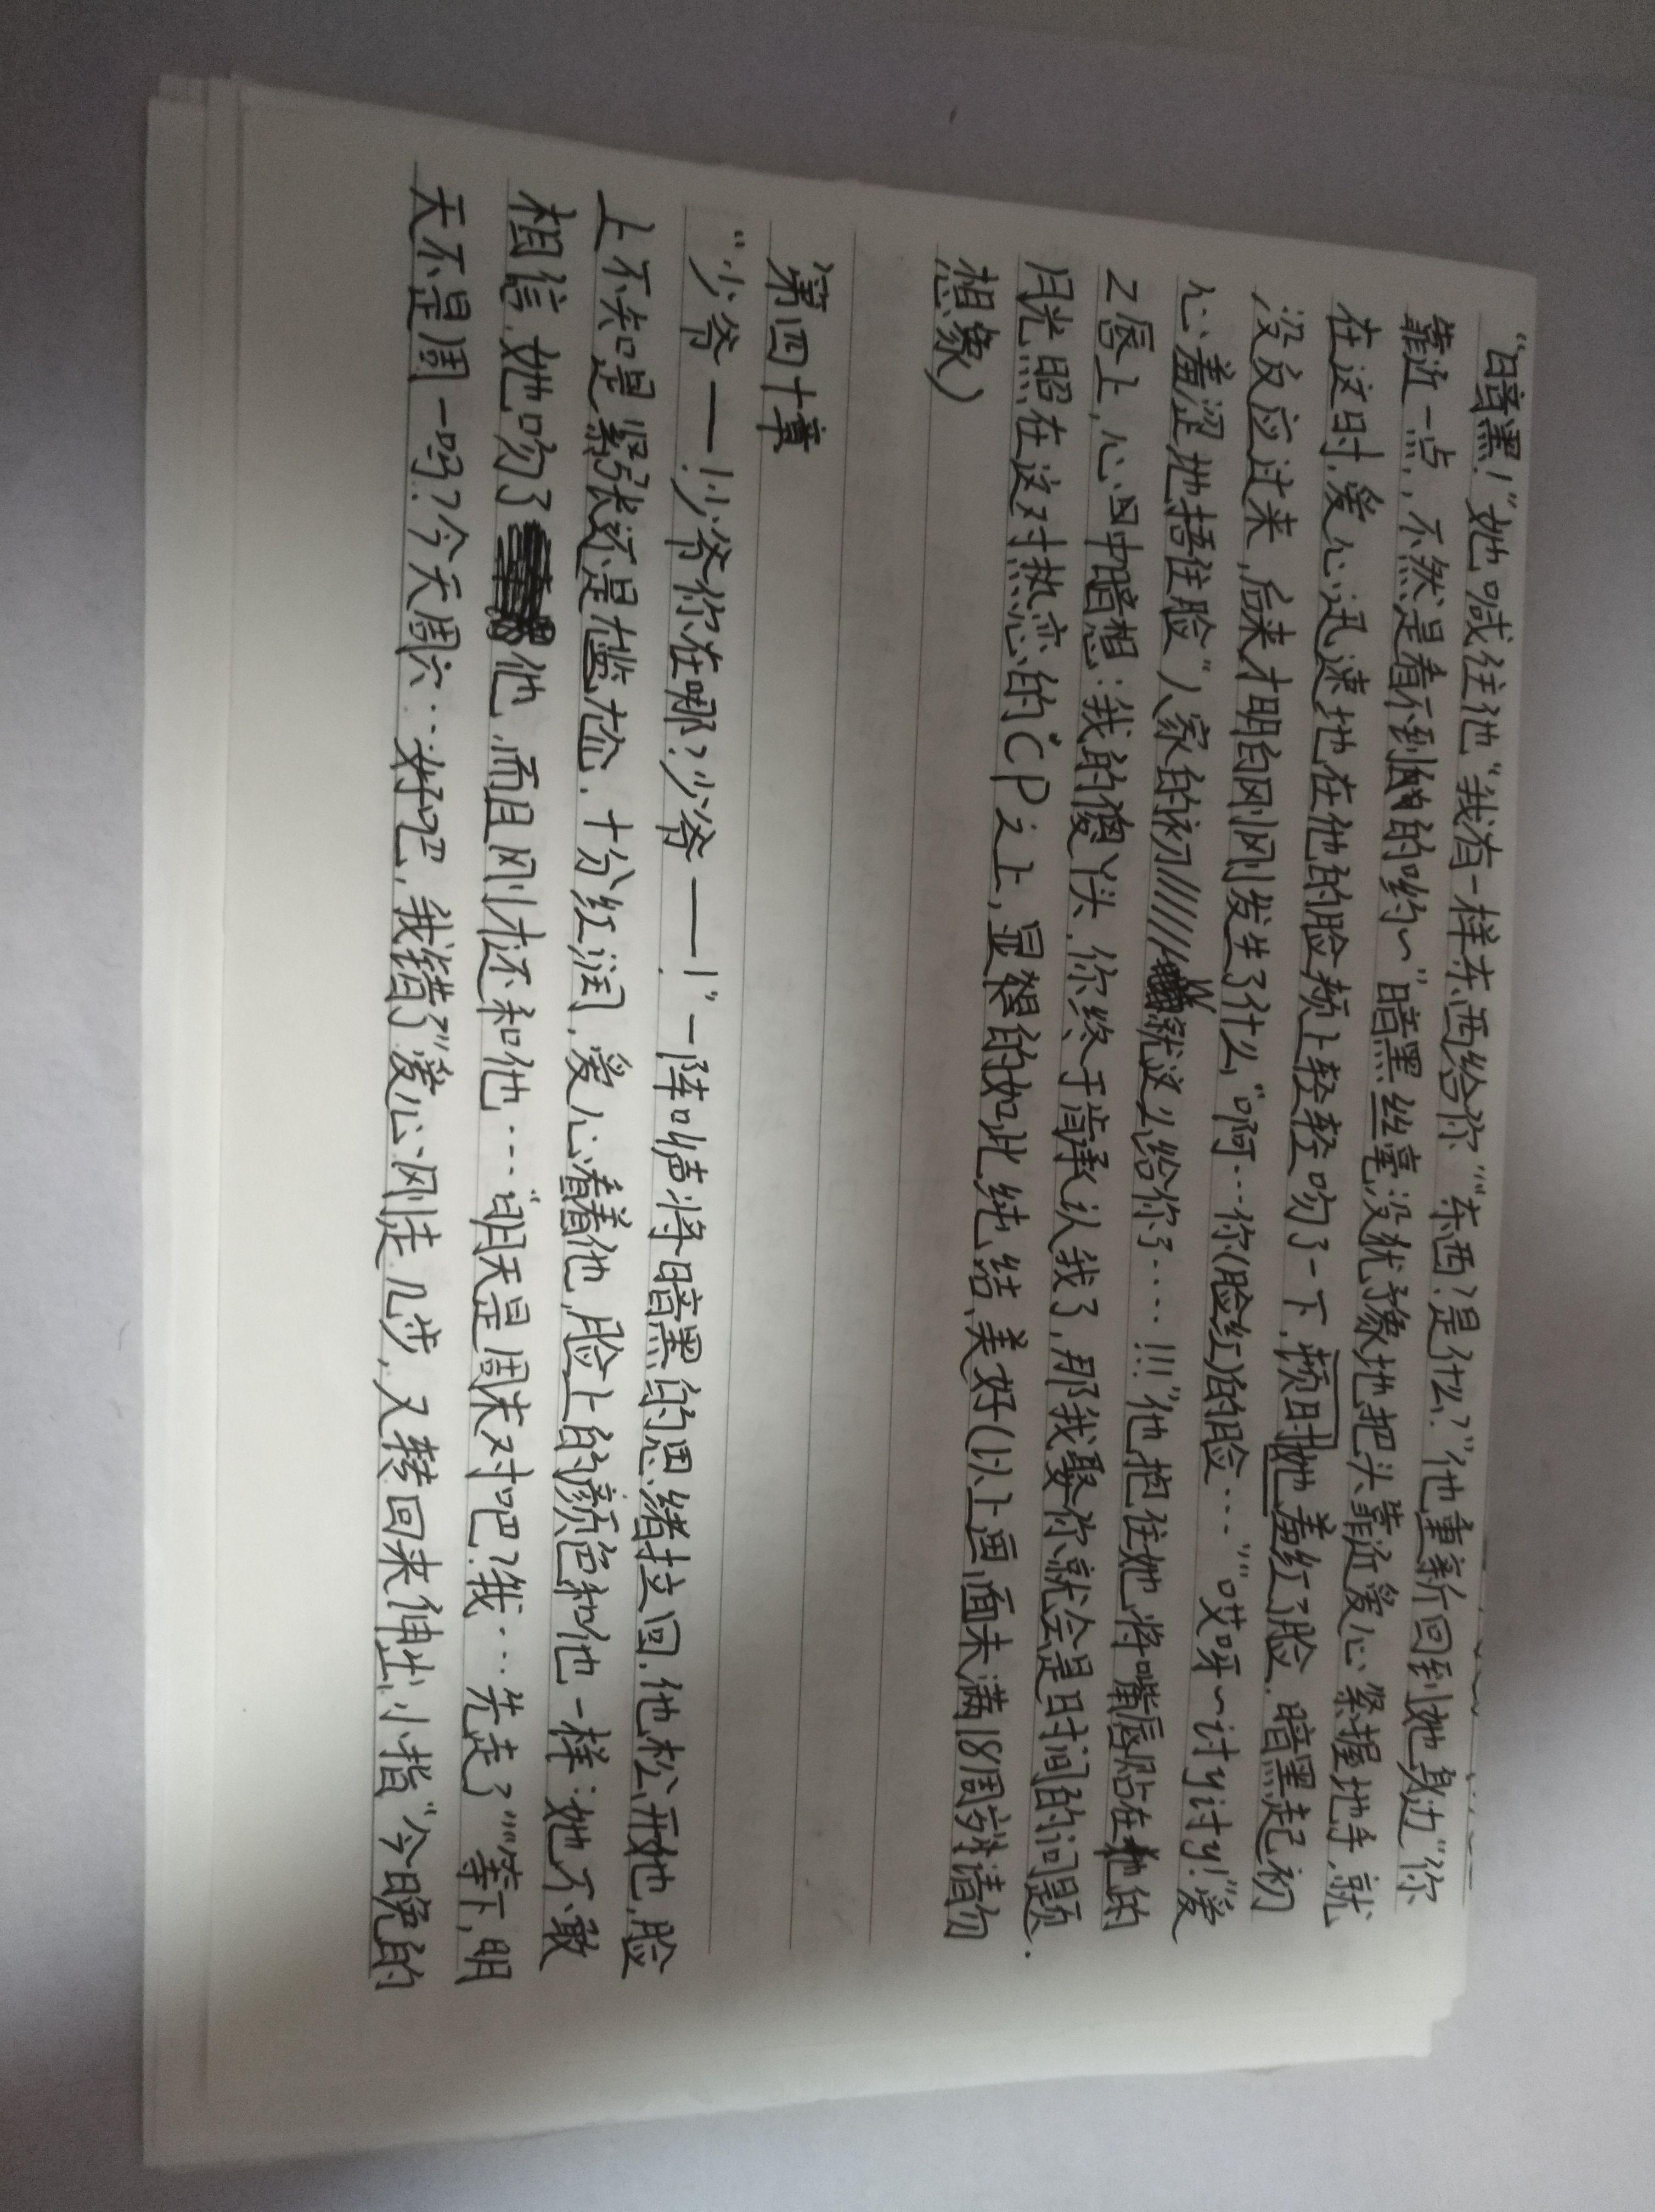 “暗黑!”她喊住他“我有一样东西给你”“东西?是什么?”他重新回到她身边“你
靠近一点,不然是看不到的哟~”暗黑丝毫没犹豫地把头靠近爱心紧握地手,就
在这时,爱心迅速地在他的脸颊上轻轻吻了一下,顿时她羞红了脸.暗黑起初
没反应过来,后来才明白刚刚发生了什么,“啊…你(脸红)的脸…”“哎呀~讨讨厌!”爱
心羞涩地捂住脸”人家的初///////就这么给你了….!!!”他抱住她将嘴唇贴在她的
之唇上,心中暗想:我的傻丫头.你终于肯承认我了,那我娶你就会是时间的问题.
月光照在这对热恋的CP之上,显得的如此纯结、美好(以上画面未满18周岁请勿
想象)
第四十章
“少爷——!少爷你在哪?少爷——!”一阵叫声将暗黑的思绪拉回.他松开她,脸
上不知是紧张还是尴尬.十分红润.爱心看着他,脸上的颜色和他一样:她不敢
相信.她吻了他,而且刚才还和他…“明天是周末对吧?我…先走了”“等下,明
天不是周一吗?今天周六…好吧,我错了”爱心刚走几步,又转回来伸出小指“今晚的